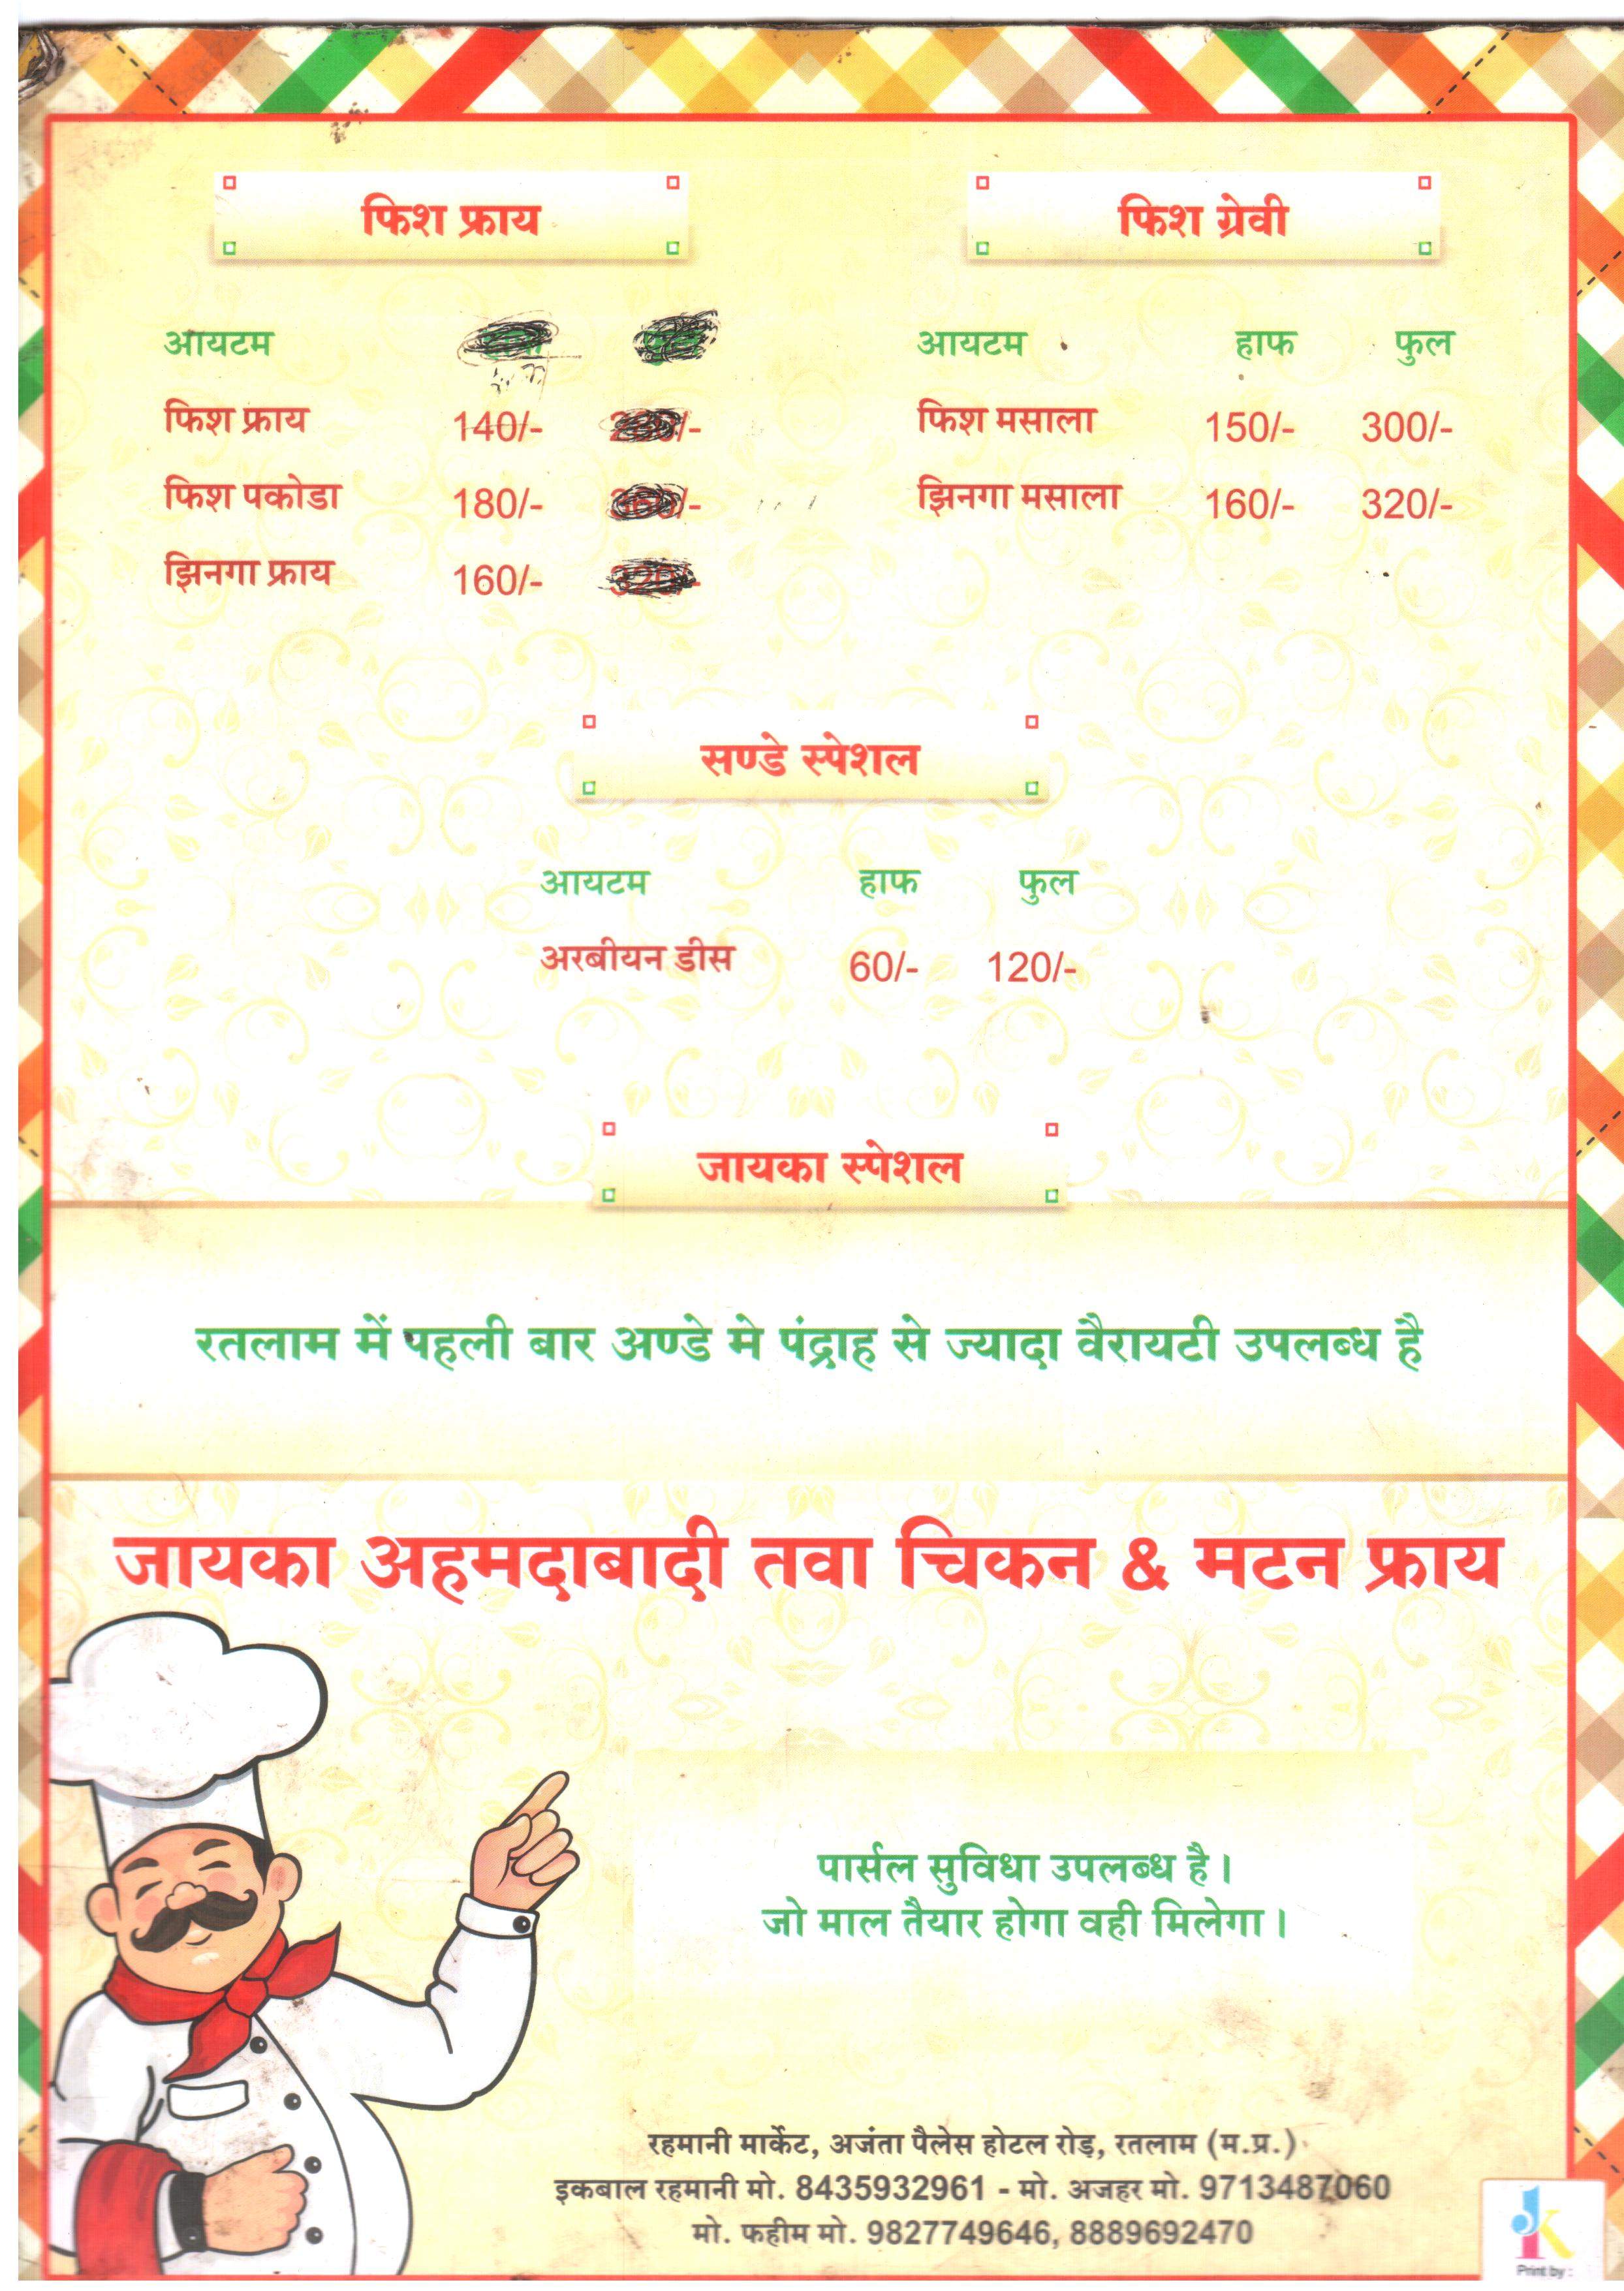 फिश फ्राय
आयटम
फिश फ्राय 140/-
फिश पकोडा 180/-
झिनगा फ्राय 160/-
फिश ग्रेवी
आयटम हाफ फुल
फिश मसाला 150/- 300/-
झिनगा मसाला 160/- 320/-
सण्डे स्पेशल
आयटम हाफ फुल
अरबीयन डीस 60/- 120/-
जायका स्पेशल
रतलाम में पहली बार अण्डे मे पंद्राह से ज्यादा वैरायटी उपलब्ध है
जायका अहमदाबादी तवा चिकन & मटन फ्राय
पार्सल सुविधा उपलब्ध है।
जो माल तैयार होगा वही मिलेगा।
रहमानी मार्केट, अजंता पैलेस होटल रोड़, रतलाम (म.प्र.)
इकबाल रहमानी मो. 8435932961 - मो. अजहर मो. 9713487060
मो. फहीम मो. 9827749646, 8889692470
JK
Print by :